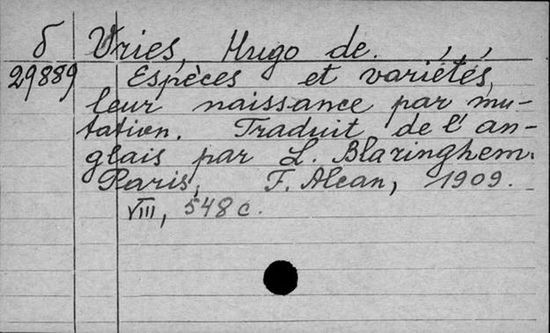 б Vries, Hugo de.
29889 Espèces et variétés,
leur naissance par mu-
tation. Traduit de l'an-
glais par L. Blaringhem.
Paris, F. Alcan, 1909.
VIII, 548 c.